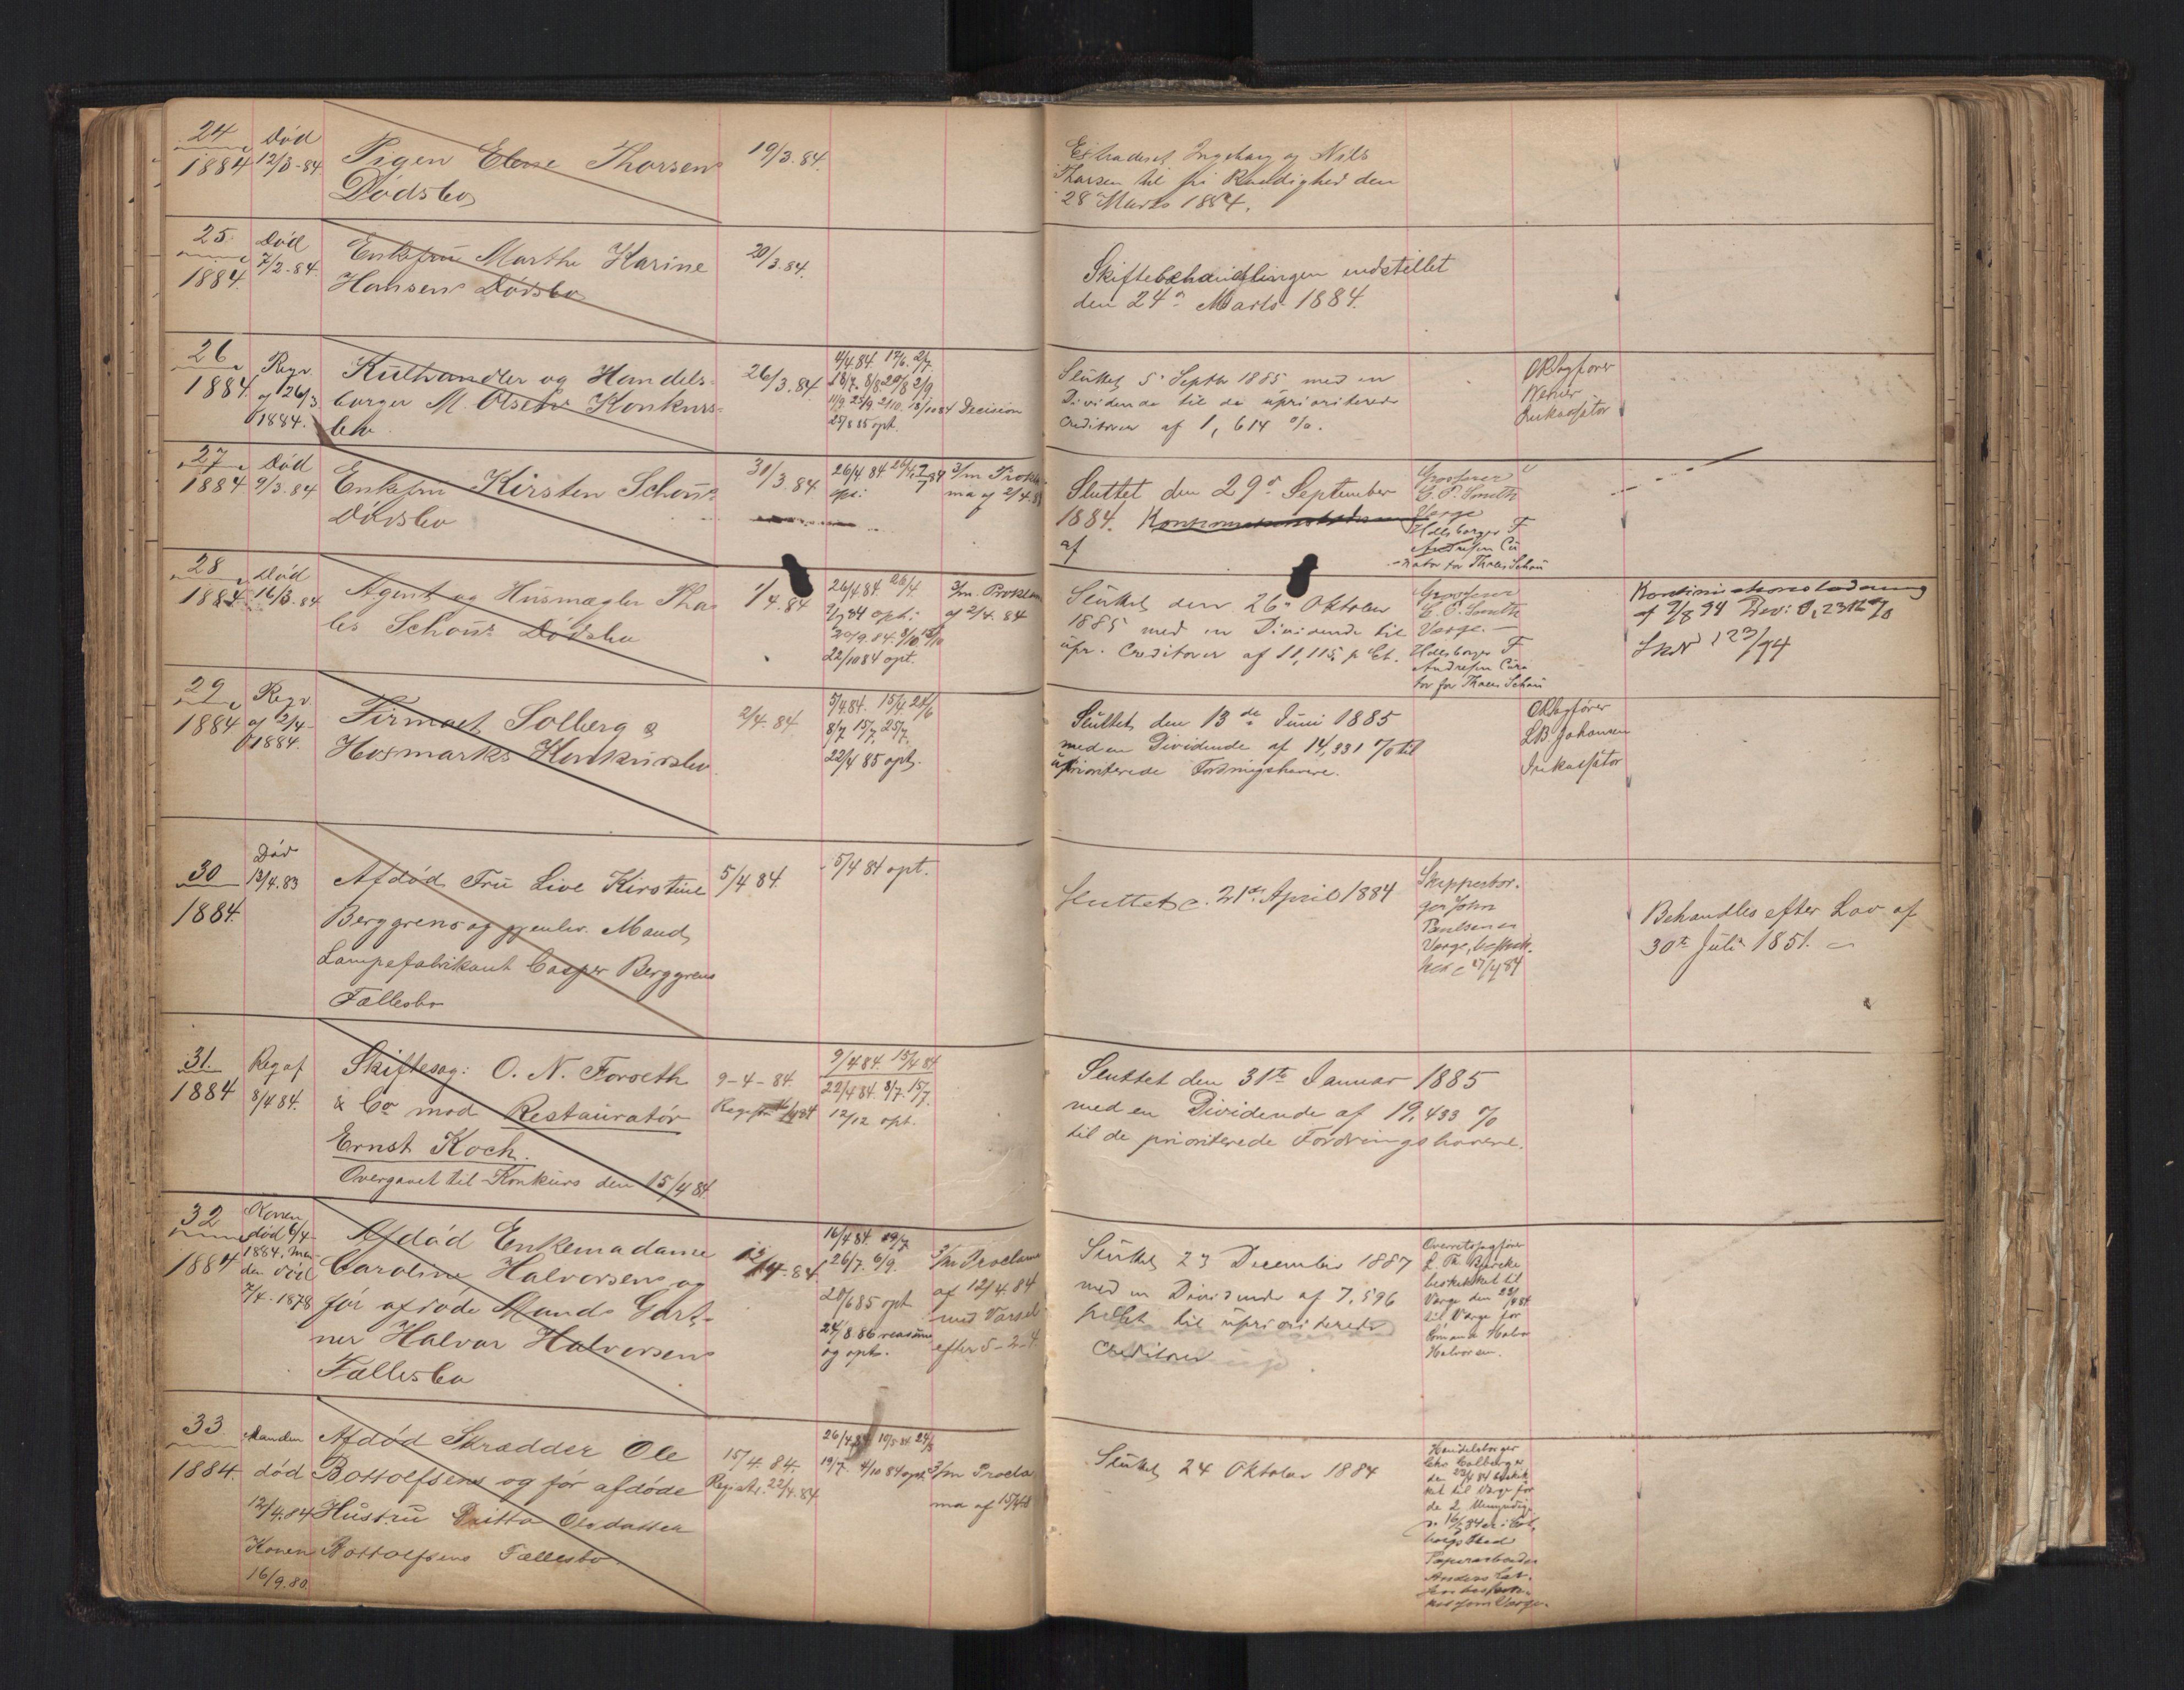 24
1884
Død
12/3-84
Pigen Elene Thorsens
Dødsbo
19/3.84.
Extraderet Ingeborg og Nils
Thorsen til fri Raadighed den
28 Marts 1884.
25
1884.
Død
7/2-84.
Enkefru Marthe Karine
Hansens Dødsbo
20/3.84.
Skiftebehandlingen indstillet
den 24de Marts 1884.
26
1884.
Reqv.
af 26/3
1884.
Kulhandler og Handels-
borger M. Olsens Konkurs-
bo
26/3.84.
4/4 84. 17/6. 2/7.
18/7. 8/8 20/8 2/9
11/9 23/9 2/10. 13/10 84 Decision
25/8 85 opt.
Sluttet 5 Septbr 1885 med en
Dividende til de uprioriterede
Creditorer af 1,614 %.
ORSagfører
Inkassator
27
1884
Død
9/3.84
Enkefru Kirsten Schous
Dødsbo
31/3.84.
26/4 84
opt:
3/m Prokla-
ma af 2/4.84
Sluttet den 29de September
1884.
af
Grosserer
C. P. Smith
Værge
Hdlsborger F
Andresen Cu-
rator for Thales Schou
28
1884.
Død
16/3.84
Agent og Husmægler Tha-
les Schous Dødsbo
1/4.84
26/4 84 26/4
2/7 84 opt:
20/9.84. 8/10. 13/10
22/10 84 opt.
3/m. Proklama
af 2/4.84
Sluttet den 26de Oktober
1885 med en Dividende til
upr. Creditorer af 11,115 p Ct.
Grosserer
C. P. Smith
Værge.
Hdlsborger F
Andresen Cura-
tor for Thales Schou
Kontinuationsudlodning
29
1884
Reqv.
af 2/4-
1884.
Firmaet Solberg &
Hosmarks Konkursbo.
2/4.84
5/4 84. 15/4 24/6
8/7 15/7. 25/7.
22/4 85 opt.
Sluttet den 13de Juni 1885
med en Dividende af 14,331 % til
uprioriterede Fordringshavere.
ORSagfører
L.B. Johansen
Inkassator
30
1884.
Død
13/4.83
Afdød Fru Live Kirstine
Berggrens og gjenlev. Mand,
Lampefabrikant Casper Berggrens
Fællesbo
5/4 84.
5/4 84 opt.
Sluttet d. 21de April 1884
Skipperbor-
ger John
Paulsen er
Værge, beskik-
ket d 17/4 84
Behandles efter Lov af
30te Juli 1851.
31.
1884
Reqaf
8/4 84.
Skiftesag: O. N. Forseth
& Co mod Restauratør
Ernst Koch.
Overgaaet til Konkurs den 15/4 84.
9-4-84.
9/4 84. 15/4 84
22/4 84. 8/7. 15/7.
12/12 opt.
Sluttet den 31te Januar 1885
med en Dividende af 19,433 %
til de prioriterede Fordringshavere.
32
1884
Konen
død 6/4-
1884, Man-
den død
7/4.1878
Afdød Enkemadame
Caroline Halvorsens og
før afdøde Mands Gart-
ner Halvor Halvorsens
Fællesbo
12/4-84
16/4 84. 19/7
26/7. 6/9.
20/6 85 opt
24/8 86 reasume
og opt.
3/m Proclama
af 12/4.84
med Varsel
efter 5-2-4.
Sluttet 23 December 1887
med en Dividende af 7,596
pCt til uprioriterede
Creditorer
Overretssagfører
beskikket til
Værge den 22/4 84.
til Værge for
Halvorsen.
33.
1884.
Manden
død
12/4.84
Konen
16/9.80.
Afdød Skrædder Ole
Bottolfsens og før afdøde
Hustru Britta Olsdatter
Bottolfsens Fællesbo.
15/4.84.
Registr. 22/4.84
26/4 84 10/5 84 24/5
19/7. 4/10 84 opt.
3/m Procla-
ma af 15/4 84
Sluttet 24 Oktober 1884
Handelsborger
Chr Colberg er
den 22/4 84 beskik-
ket til Værge for
de 2 Umyndige
Papirarbeider
Anders